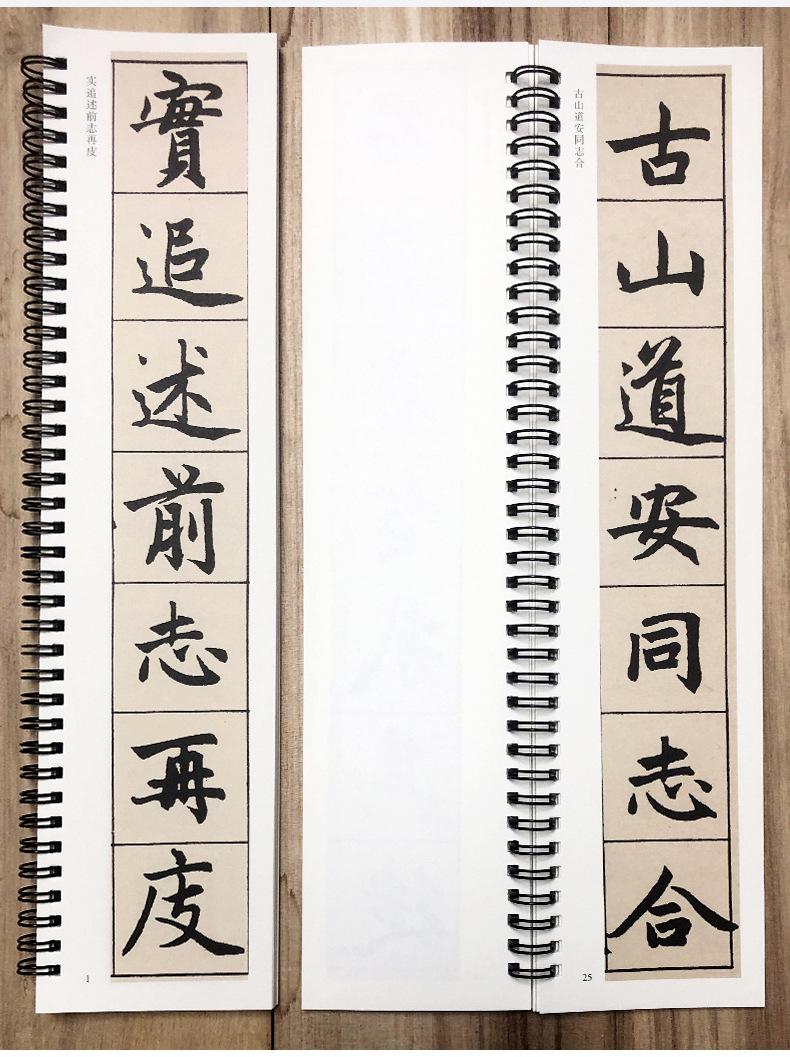 实追述前志再庋
實追述前志再庋
1
古山道安同志合
古山道安同志合
25